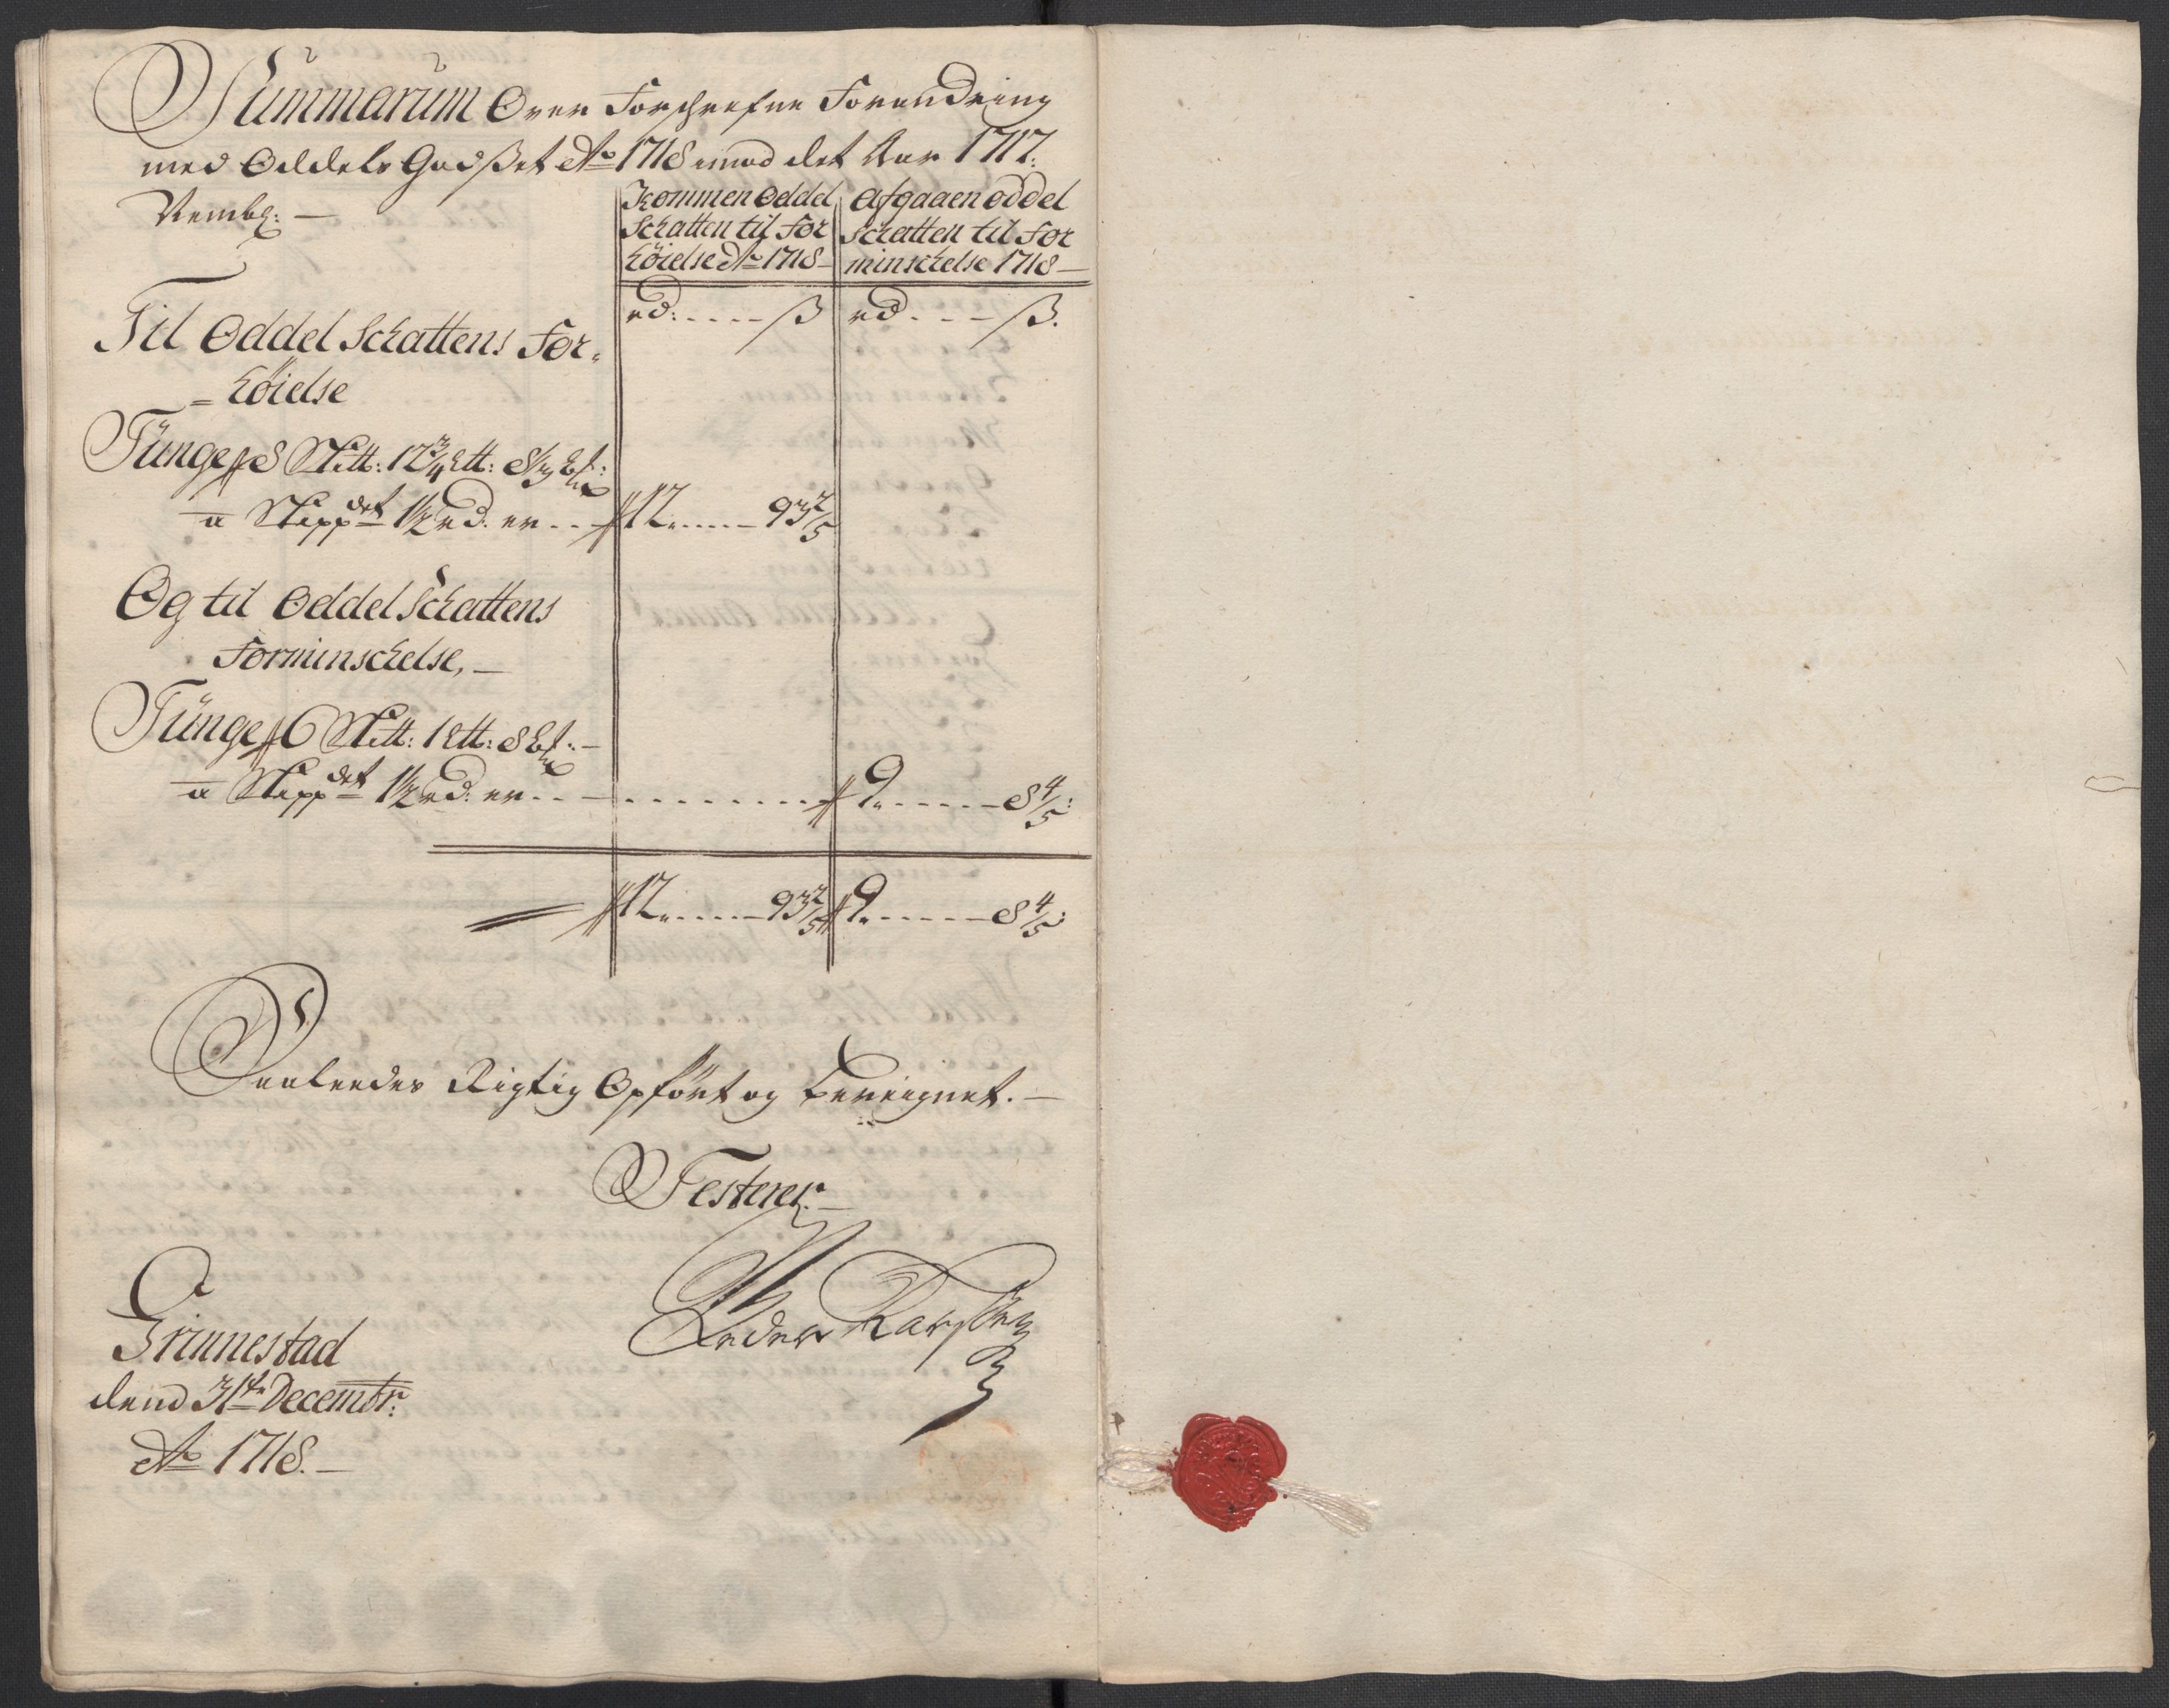 Summarum Over Forschrefne Forandring
med Oddels Godset Ao 1718 imod det Aar 1717.
Nembl: —
Kommen Oddel Schatten til For höielse Ao 1718 —
Afgaaen oddel Schatten til For minschelse 1718 —
rd: . . . . ß rd . . . ß.
Til Oddel Schattens For-
= höielse
Tünge 8 Pitt: 17 3/4 Ett:
a Skippdet 1½ rd: er . . 12. . . . . 93 2/5
Og til Oddel Schattens
Forminschelse, —
Tünge 6 Pitt: 1 Ett: 8
a Skippdet 1½ rd: er . . . . . . . . . 9. . . . . . 8 4/5:
12. . . . . 93 2/5 9. . . . . . 8 4/5:
Saaleedes Rigtig Opfört og bereignet. —
Testerer. —
Peder Karsten
Grinnestad
dend 31te Decembr:
Ao 1718. —